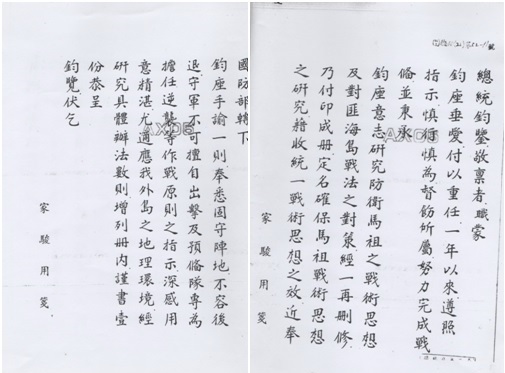 總統鈞鑒敬稟者職蒙
鈞座垂愛付以重任一年以來遵照
指示慎行慎為督飭所屬努力完成戰
備並秉承
鈞座意志研究防衛馬祖之戰術思想
及對匪海島戰法之對策經一再刪修
乃付印成冊定名確保馬祖戰術思想
之研究藉收統一戰術思想之效近奉
家駿用箋
AX05
國防部轉下
鈞座手諭一則奉悉固守陣地不容後
退守軍不可擅自出擊及預備隊專為
擔任逆襲等作戰原則之指示深感用
意精湛尤適應我外島之地理環境經
研究具體辦法數則增列冊內謹書壹
份恭呈
鈞覽伏乞
家駿用箋
AX05